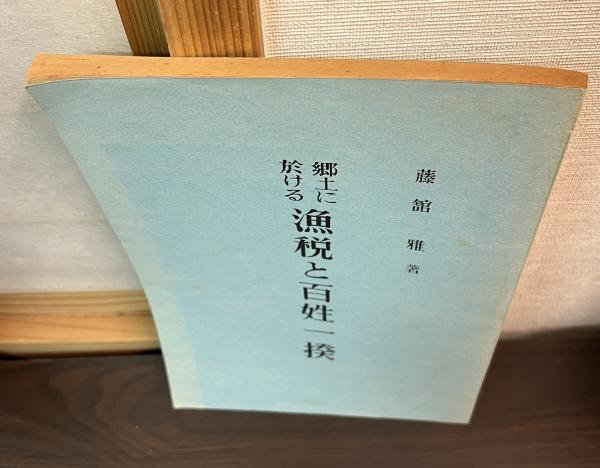 藤舘雅著
郷土に
於ける
漁税と百姓一揆